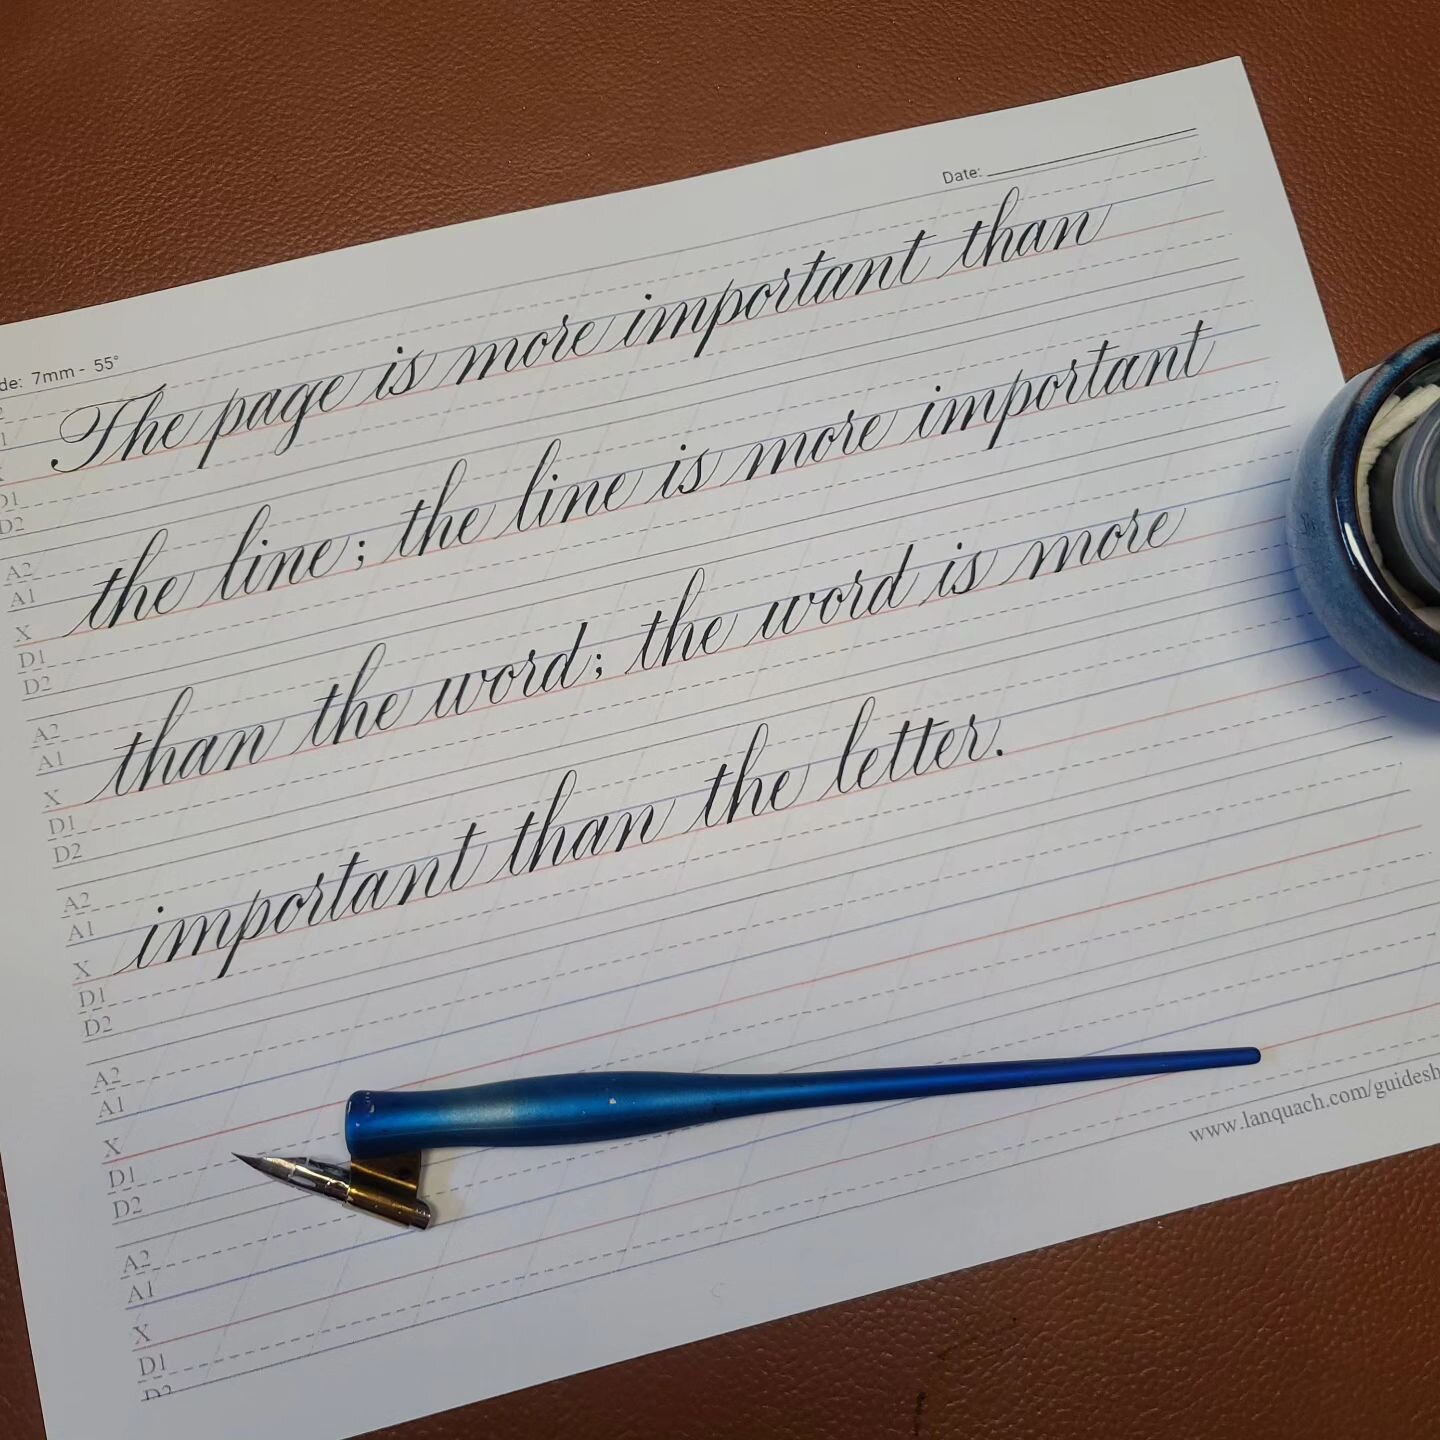 Date:
de: 7mm - 55°
The page is more important than
the line; the line is more important
than the word; the word is more
important than the letter.
D1
D2
A2
A1
X
D1
D2
A2
A1
X
D1
D2
A2
A1
X
D1
D2
A2
A1
X
D1
D2
A2
A1
X
D1
D2
www.lanquach.com/guidesh